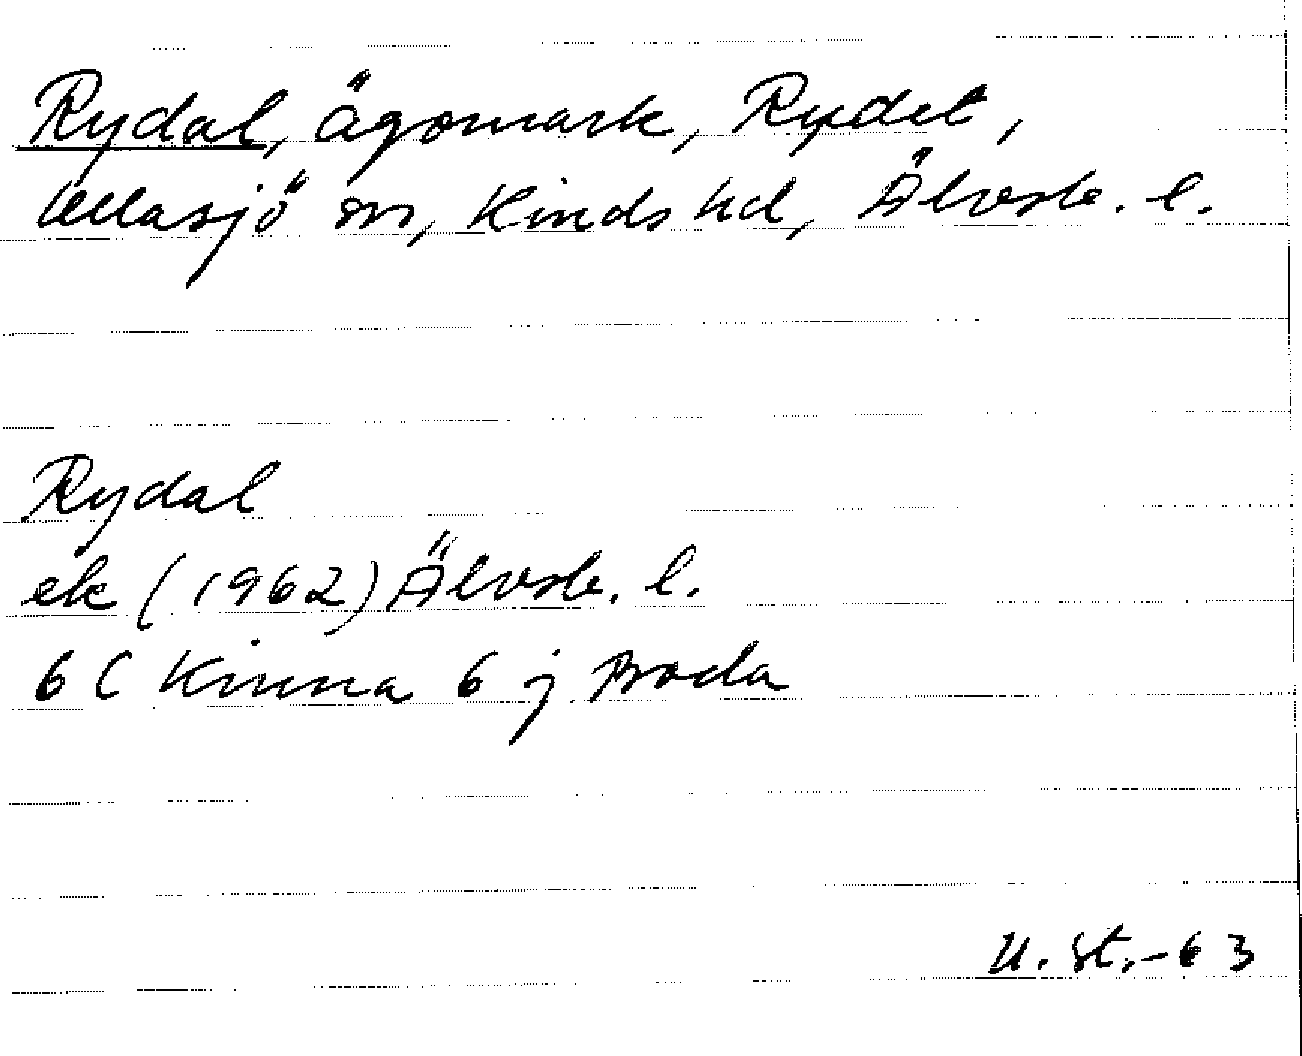 Rydal, ägomark, Rydet,
Ullasjö sn, Kinds hd, Älvsb. l.
Rydal
ek (1962) Älvsb. l.
6 C Kinna 6 j Broda
U. St.-63